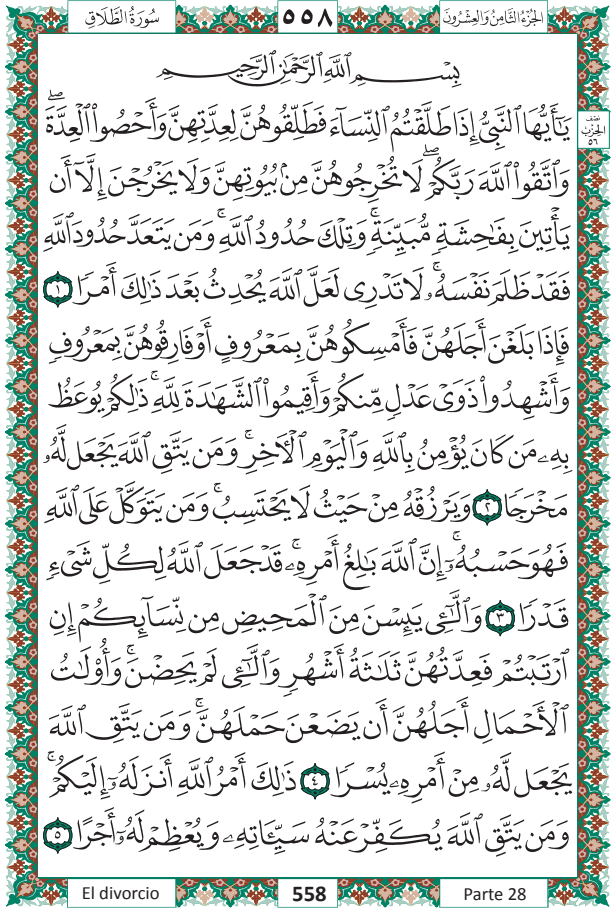 سُورَةُ الطَّلَاقِ ٥٥٨ الجُزْءُ الثَّامِنُ وَالعِشْرُونَ
بِسْمِ ٱللَّهِ ٱلرَّحْمَٰنِ ٱلرَّحِيمِ
يَٰٓأَيُّهَا ٱلنَّبِيُّ إِذَا طَلَّقْتُمُ ٱلنِّسَآءَ فَطَلِّقُوهُنَّ لِعِدَّتِهِنَّ وَأَحْصُوا۟ ٱلْعِدَّةَۖ
نصف الحزب ٥٦
وَٱتَّقُوا۟ ٱللَّهَ رَبَّكُمْۖ لَا تُخْرِجُوهُنَّ مِنۢ بُيُوتِهِنَّ وَلَا يَخْرُجْنَ إِلَّآ أَن
يَأْتِينَ بِفَٰحِشَةٍ مُّبَيِّنَةٍۚ وَتِلْكَ حُدُودُ ٱللَّهِۚ وَمَن يَتَعَدَّ حُدُودَ ٱللَّهِ
فَقَدْ ظَلَمَ نَفْسَهُۥۚ لَا تَدْرِى لَعَلَّ ٱللَّهَ يُحْدِثُ بَعْدَ ذَٰلِكَ أَمْرًا ١
فَإِذَا بَلَغْنَ أَجَلَهُنَّ فَأَمْسِكُوهُنَّ بِمَعْرُوفٍ أَوْ فَارِقُوهُنَّ بِمَعْرُوفٍ
وَأَشْهِدُوا۟ ذَوَىْ عَدْلٍ مِّنكُمْ وَأَقِيمُوا۟ ٱلشَّهَٰدَةَ لِلَّهِۚ ذَٰلِكُمْ يُوعَظُ
بِهِۦ مَن كَانَ يُؤْمِنُ بِٱللَّهِ وَٱلْيَوْمِ ٱلْءَاخِرِۚ وَمَن يَتَّقِ ٱللَّهَ يَجْعَل لَّهُۥ
مَخْرَجًا ٢ وَيَرْزُقْهُ مِنْ حَيْثُ لَا يَحْتَسِبُۚ وَمَن يَتَوَكَّلْ عَلَى ٱللَّهِ
فَهُوَ حَسْبُهُۥٓۚ إِنَّ ٱللَّهَ بَٰلِغُ أَمْرِهِۦۚ قَدْ جَعَلَ ٱللَّهُ لِكُلِّ شَىْءٍ
قَدْرًا ٣ وَٱلَّٰٓـِٔى يَئِسْنَ مِنَ ٱلْمَحِيضِ مِن نِّسَآئِكُمْ إِنِ
ٱرْتَبْتُمْ فَعِدَّتُهُنَّ ثَلَٰثَةُ أَشْهُرٍ وَٱلَّٰٓـِٔى لَمْ يَحِضْنَۚ وَأُو۟لَٰتُ
ٱلْأَحْمَالِ أَجَلُهُنَّ أَن يَضَعْنَ حَمْلَهُنَّۚ وَمَن يَتَّقِ ٱللَّهَ
يَجْعَل لَّهُۥ مِنْ أَمْرِهِۦ يُسْرًا ٤ ذَٰلِكَ أَمْرُ ٱللَّهِ أَنزَلَهُۥٓ إِلَيْكُمْۚ
وَمَن يَتَّقِ ٱللَّهَ يُكَفِّرْ عَنْهُ سَيِّـَٔاتِهِۦ وَيُعْظِمْ لَهُۥٓ أَجْرًا ٥
El divorcio 558 Parte 28